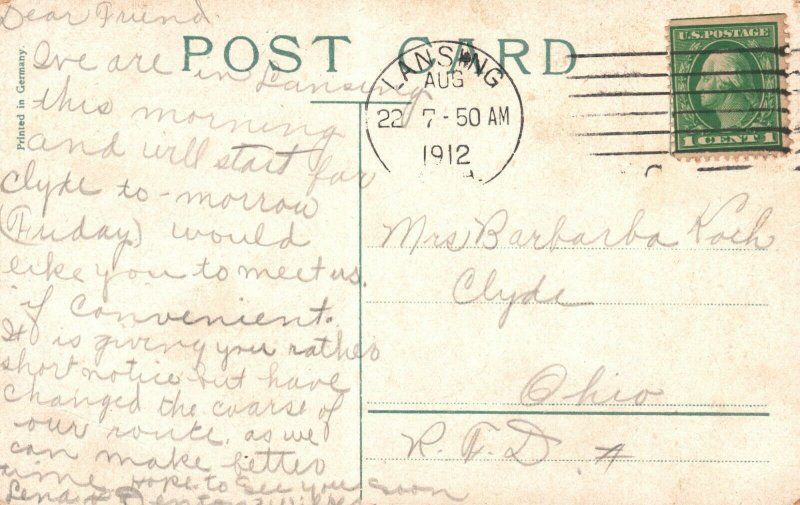 Dear Friend
We are in Lansing
this morning
and will start for
Clyde to-morrow
(Friday) would
like you to meet us.
if convenient.
It is giving you rather
short notice but have
changed the coarse of
our route, as we
can make better
time Hope to See you Soon
Lena &
Printed in Germany
POST CARD
LANSING
AUG
22 7-50 AM
1912
U.S. POSTAGE
1 CENT 1
Mrs Barbarba Koch
Clyde
Ohio
R.F.D. #